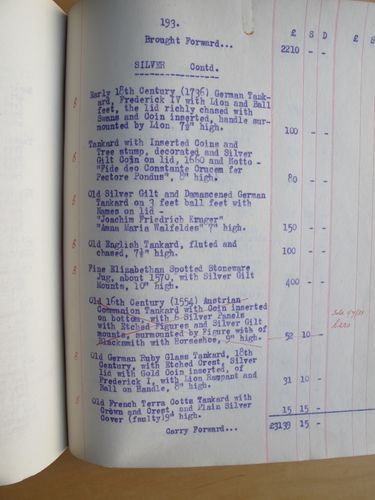 193.
£ S D £ S
Brought Forward... 2210 - -
SILVER Contd.
B Early 18th Century (1736) German Tank-
ard, Frederick IV with Lion and Ball
feet, the lid richly chased with
Swans and Coin inserted, handle sur-
mounted by Lion 7½" high. 100 - -
Tankard with Inserted Coins and
Tree stump, decorated and Silver
Gilt Coin on lid, 1660 and Motto -
"Fide deo Constante Crucem fer
B Pectore Pondus", 8" high. 80 - -
B Old Silver Gilt and Damascened German
Tankard on 3 feet ball feet with
Names on lid -
"Joachim Friedrich Kruger"
"Anna Maria Walfeldes" 7" high. 150 - -
B Old English Tankard, fluted and
chased, 7½" high. 100 - -
B Fine Elizabethan Spotted Stoneware
Jug, about 1570, with Silver Gilt
Mounts, 10" high. 400 - -
Old 16th Century (1554) Austrian
Communion Tankard with Coin inserted
on bottom, with 6 Silver Panels
with Etched Figures and Silver Gilt
mounts, surmounted by Figure with of
Blacksmith with Horseshoe, 9" high. 52 10 -
B Old German Ruby Glass Tankard, 18th
Century, with Etched Crest, Silver
lid with Gold Coin inserted, of
Frederick I, with Lion Rampant and
Ball on Handle, 8" high. 31 10 -
B Old French Terra Cotta Tankard with
Crown and Crest, and Plain Silver
Cover (faulty)9" high. 15 15 -
Carry Forward... £3139 15 -